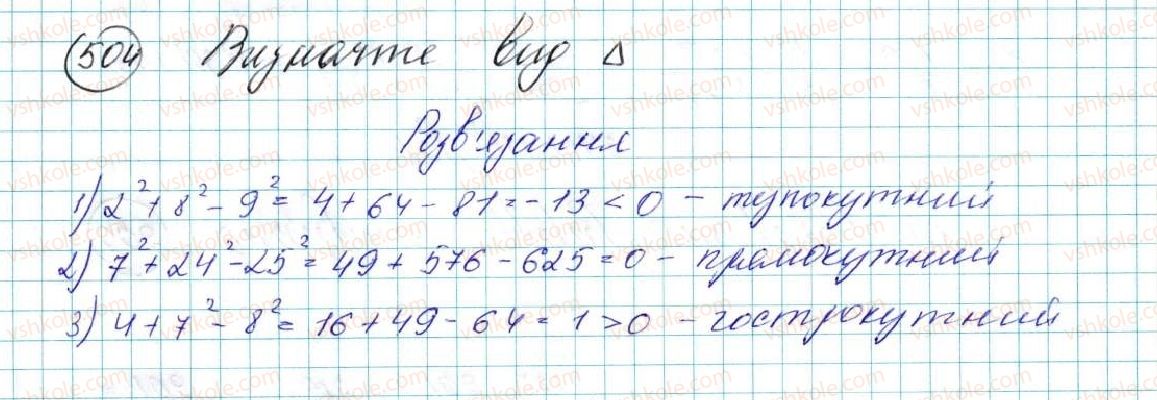 504 Визначте вид Δ
Розв'язання
1) 2² + 8² - 9² = 4 + 64 - 81 = -13 < 0 - тупокутний
2) 7² + 24² - 25² = 49 + 576 - 625 = 0 - прямокутний
3) 4 + 7² - 8² = 16 + 49 - 64 = 1 > 0 - гострокутний
vshkole.com